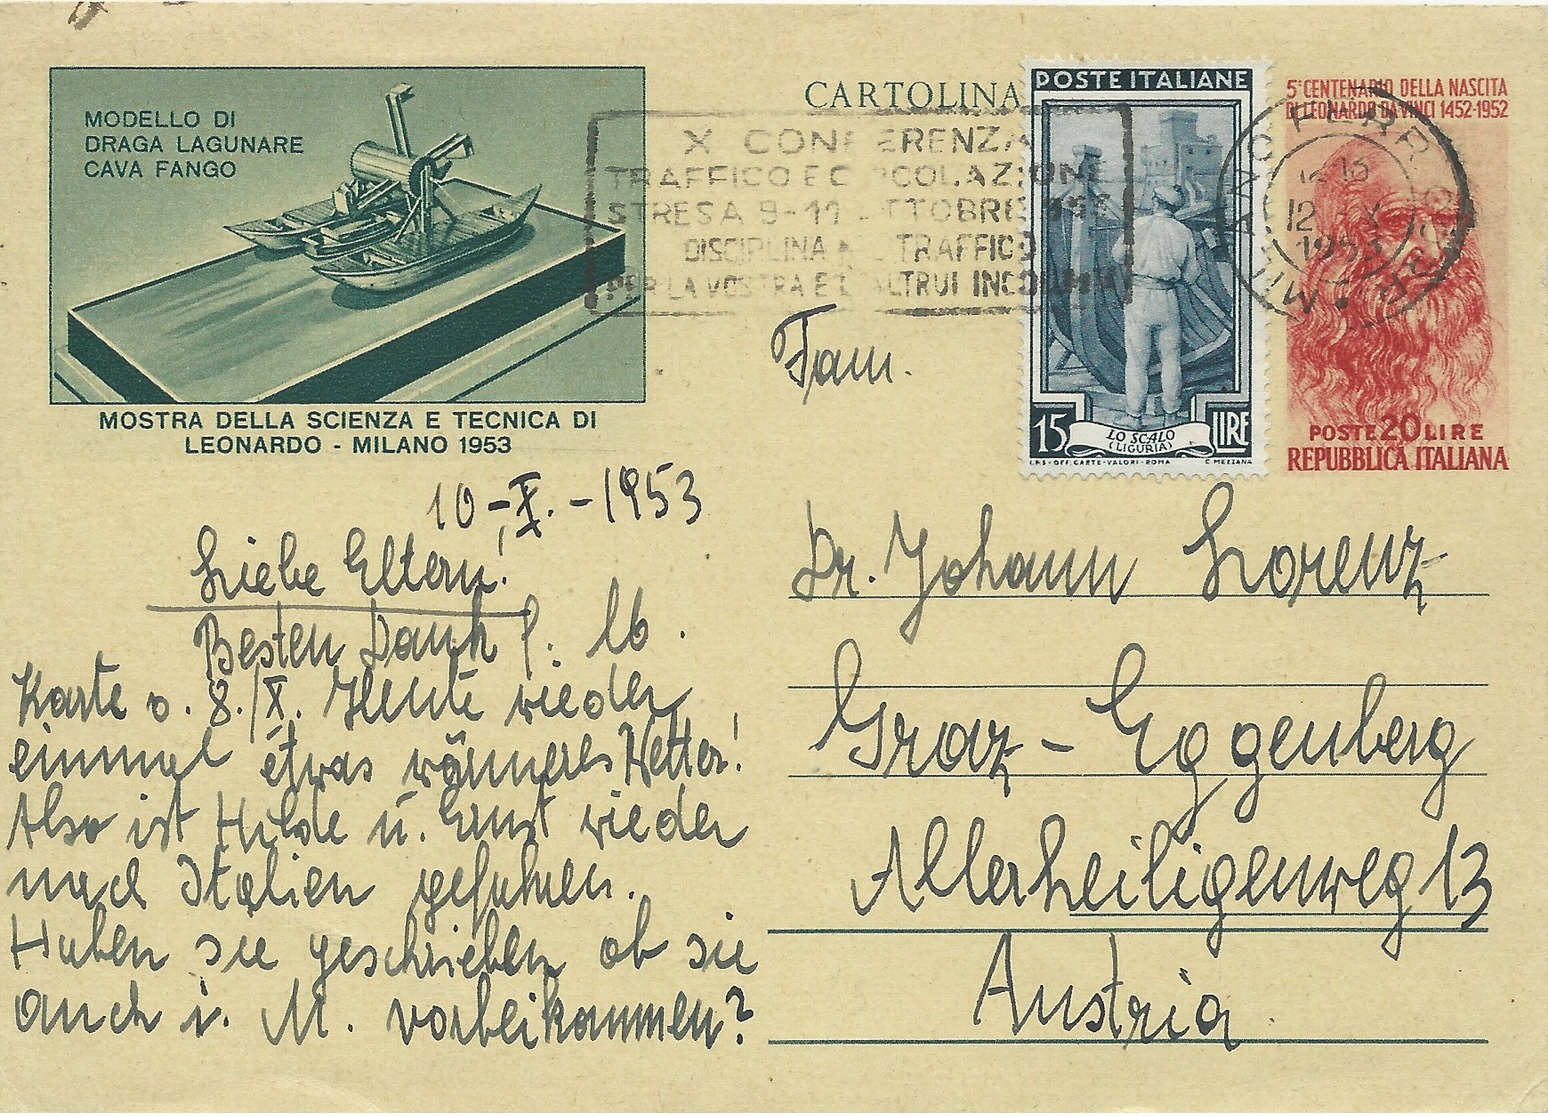 MODELLO DI
DRAGA LAGUNARE
CAVA FANGO
MOSTRA DELLA SCIENZA E TECNICA DI
LEONARDO - MILANO 1953
CARTOLINA
X CONFERENZA
TRAFFICO E CIRCOLAZIONE
STRESA 9-11 OTTOBRE
DISCIPLINA TRAFFICO
PER LA VOSTRA E L'ALTRUI INCOLUMITÀ
POSTE ITALIANE
15 LIRE
LO SCALO
(LIGURIA)
I.P.S - OFF. CARTE - VALORI - ROMA C. MEZZANA
5° CENTENARIO DELLA NASCITA
DI LEONARDO DA VINCI 1452-1952
MILANO FERR
12 X
1953
POSTE 20 LIRE
REPUBBLICA ITALIANA
10-X.-1953
Liebe Eltern!
Besten Dank f. lb.
Karte v. 8./X. Heute wieder
einmal etwas wärmeres Wetter!
Also ist Hilde u. Ernst wieder
nach Italien gefahren.
Haben sie geschrieben ob sie
auch i. M. vorbeikommen?
Fam.
Dr. Johann Lorenz
Graz - Eggenberg
Allerheiligenweg 13
Austria.